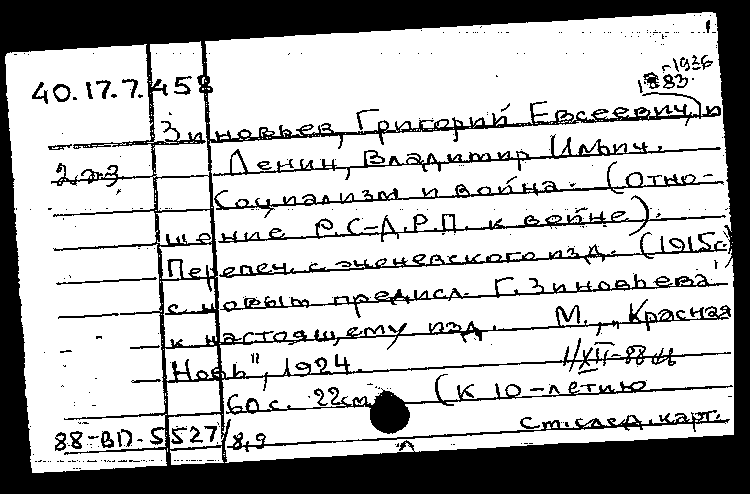 1
40.17.7.458
1883-1936
Зиновьев, Григорий Евсеевич, и
2 экз
Ленин, Владимир Ильич.
Социализм и война. (Отно-
шение Р.С-Д.Р.П. к войне).
Перепеч. с женевского изд. (1915г.)
с новым предисл. Г. Зиновьева
к настоящему изд. М., „Красная
Новь", 1924.
1/XII-88
60 с. 22см. (К 10-летию
См. след. карт.
88-ВП-5527/8,9